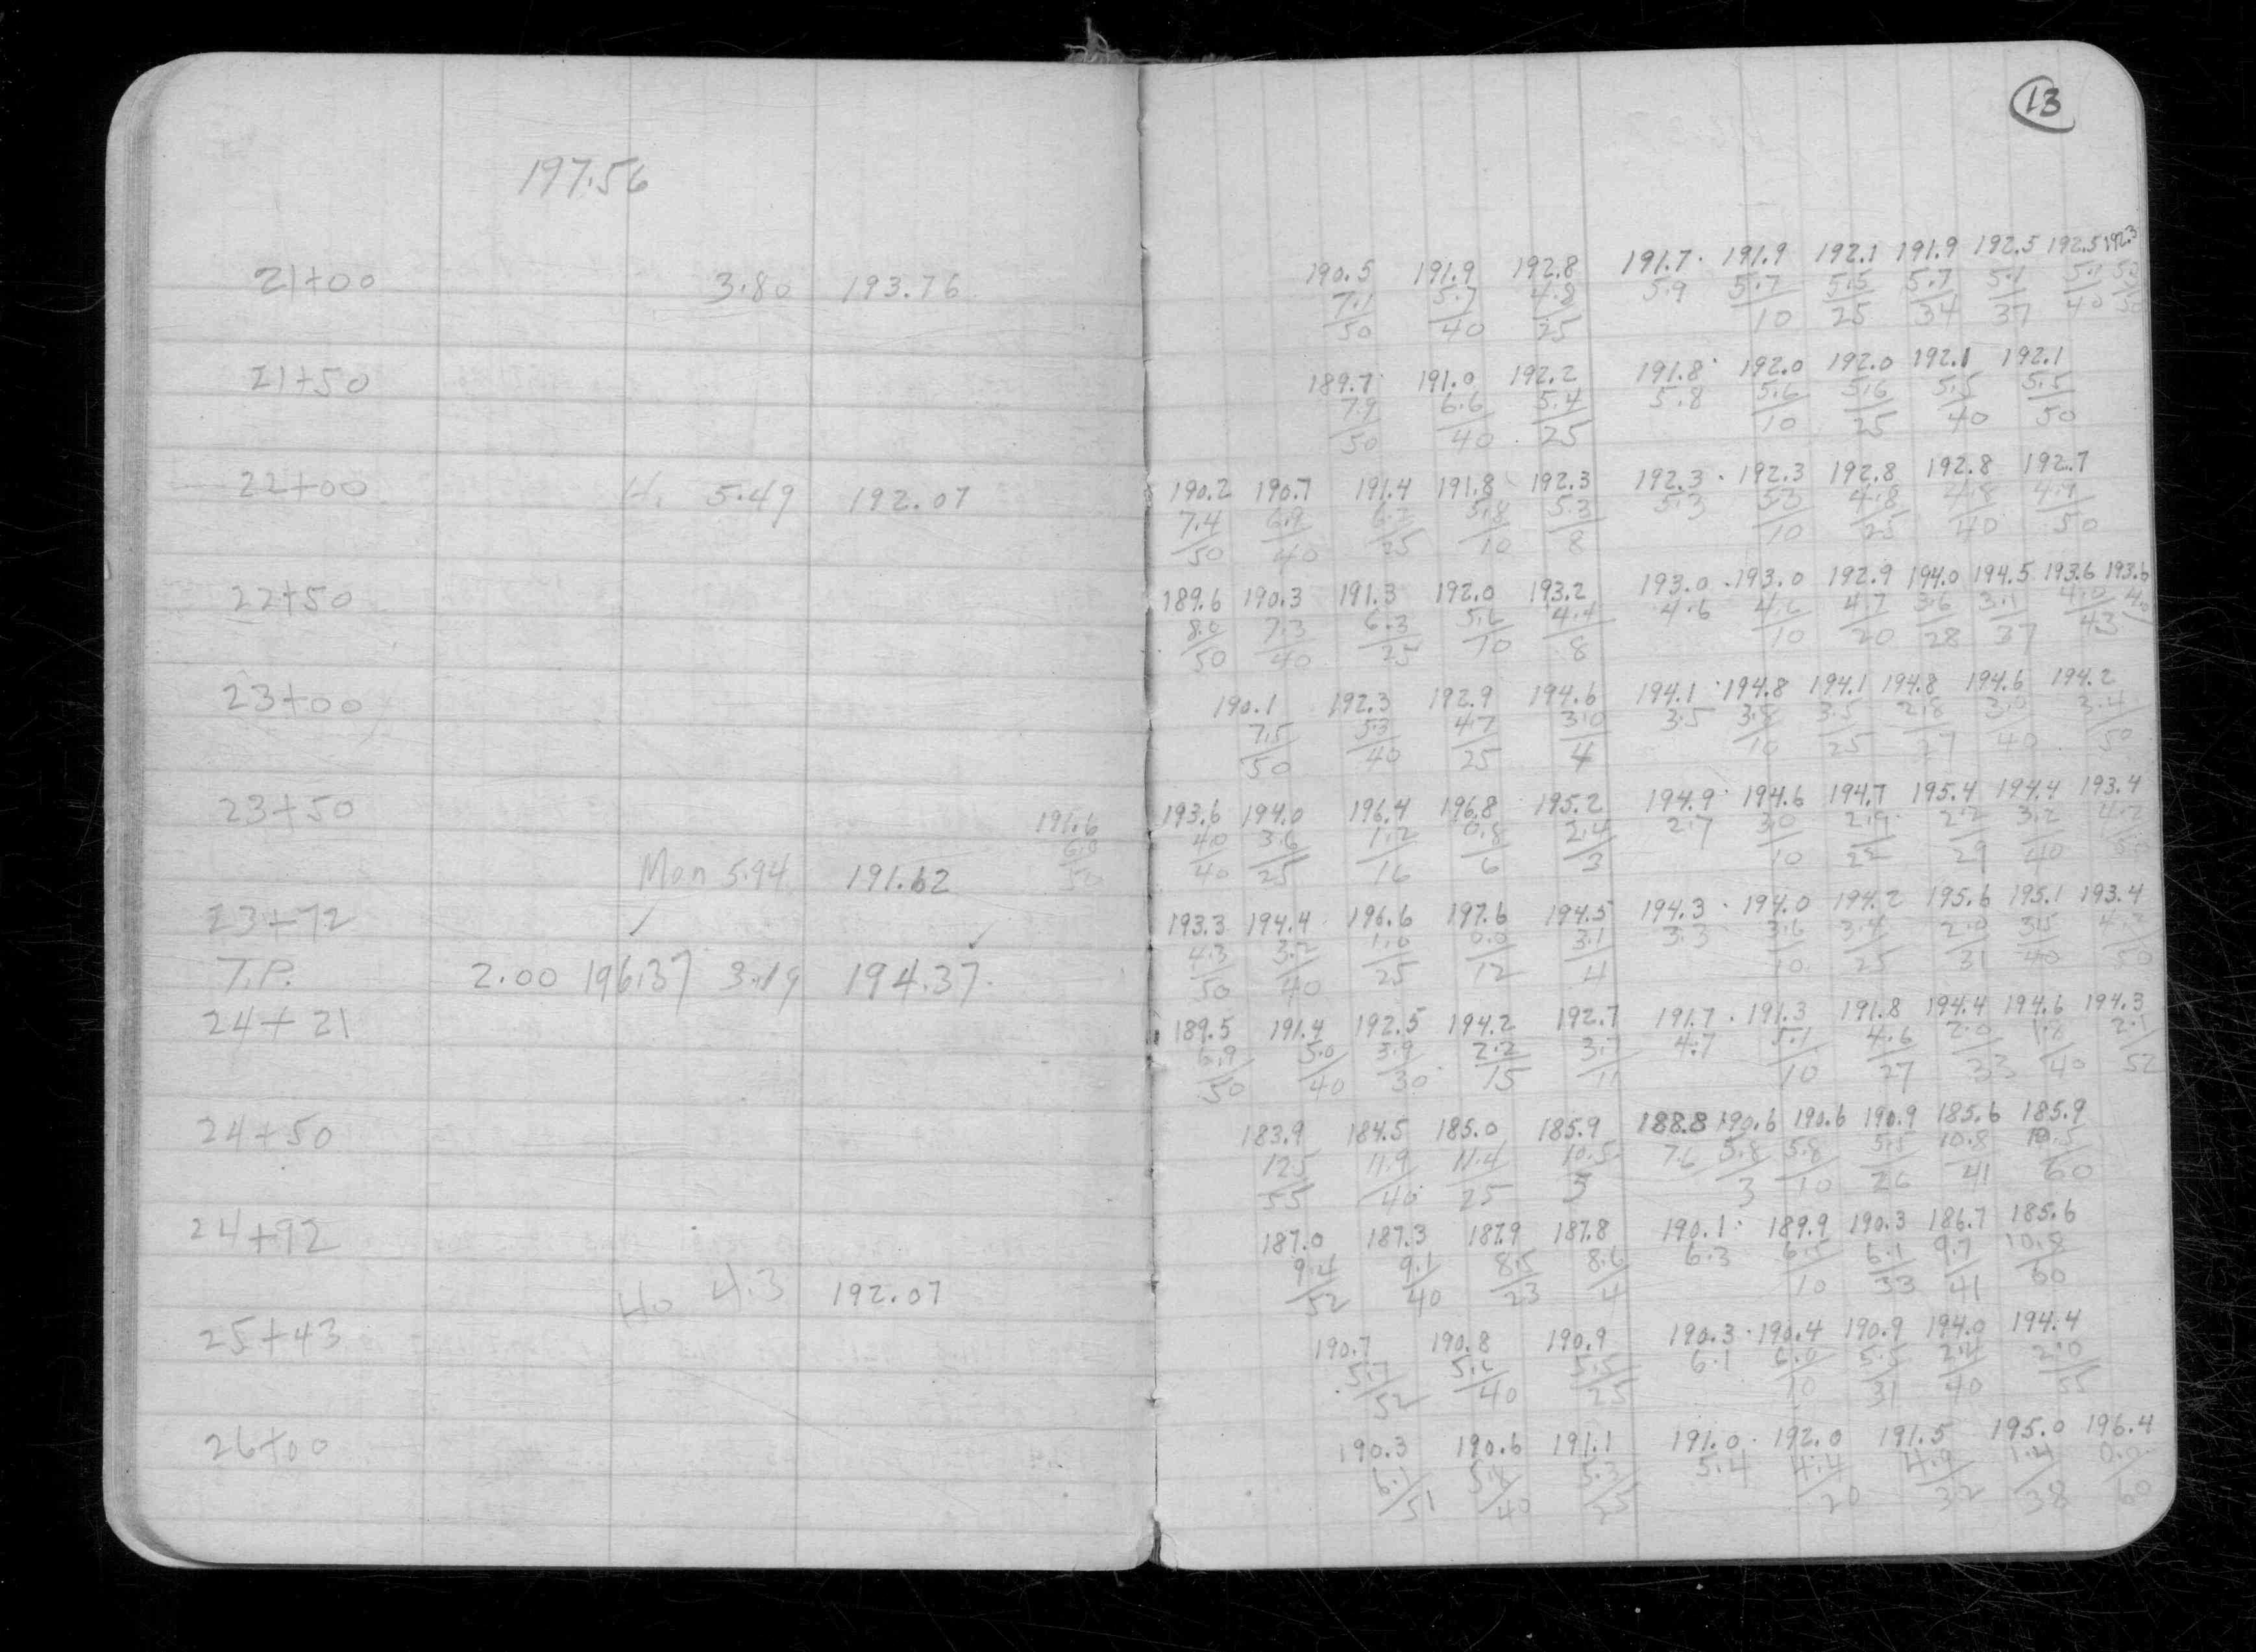 13
197.56
190.5 191.9 192.8 191.7· 191.9 192.1 191.9 192.5 192.5 192.3
21+00 3.80 193.76 7.1 5.7 4.8 5.9 5.7 5.5 5.7 5.1 5.1 5.2
50 40 25 10 25 34 37 40 50
189.7 191.0 192.2 191.8· 192.0 192.0 192.1 192.1
21+50 7.9 6.6 5.4 5.8 5.6 5.6 5.5 5.5
50 40 25 10 25 40 50
190.2 190.7 191.4 191.8 192.3 192.3 · 192.3 192.8 192.8 192.7
22+00 5.49 192.07 7.4 6.9 6.2 5.8 5.3 5.3 5.3 4.8 4.8 4.9
50 40 25 10 8 10 25 40 50
189.6 190.3 191.3 192.0 193.2 193.0 · 193.0 192.9 194.0 194.5 193.6 193.6
22+50 8.0 7.3 6.3 5.6 4.4 4.6 4.6 4.7 3.6 3.1 4.0 4.0
50 40 25 10 8 10 20 28 37 43
190.1 192.3 192.9 194.6 194.1 · 194.8 194.1 194.8 194.6 194.2
23+00 7.5 5.3 4.7 3.0 3.5 3.8 3.5 2.8 3.0 3.4
50 40 25 4 10 25 27 40 50
191.6 193.6 194.0 196.4 196.8 195.2 194.9· 194.6 194.7 195.4 194.4 193.4
23+50 6.0 4.0 3.6 1.2 0.8 2.4 2.7 3.0 2.9 2.2 3.2 4.2
50 40 25 16 6 3 10 22 29 40 50
Mon 5.94 191.62
193.3 194.4 196.6 197.6 194.5 194.3 · 194.0 194.2 195.6 195.1 193.4
23+72 4.3 3.2 1.0 0.0 3.1 3.3 3.6 3.4 2.0 3.5 4.2
50 40 25 12 4 10 25 31 40 50
T.P. 2.00 196.37 3.19 194.37
189.5 191.4 192.5 194.2 192.7 191.7 · 191.3 191.8 194.4 194.6 194.3
24+21 6.9 5.0 3.9 2.2 3.7 4.7 5.1 4.6 2.0 1.8 2.1
50 40 30 15 11 10 27 33 40 52
183.9 184.5 185.0 185.9 188.8 190.6 190.6 190.9 185.6 185.9
24+50 12.5 11.9 11.4 10.5 7.6 5.8 5.8 5.5 10.8 10.5
55 40 25 5 3 10 26 41 60
187.0 187.3 187.9 187.8 190.1· 189.9 190.3 186.7 185.6
24+92 9.4 9.1 8.5 8.6 6.3 6.5 6.1 9.7 10.8
52 40 23 4 10 33 41 60
4.3 192.07
190.7 190.8 190.9 190.3 · 190.4 190.9 194.0 194.4
25+43 5.7 5.6 5.5 6.1 6.0 5.5 2.4 2.0
52 40 25 10 31 40 55
190.3 190.6 191.1 191.0 · 192.0 191.5 195.0 196.4
26+00 6.1 5.8 5.3 5.4 4.4 4.9 1.4 0.0
51 40 25 20 32 38 60